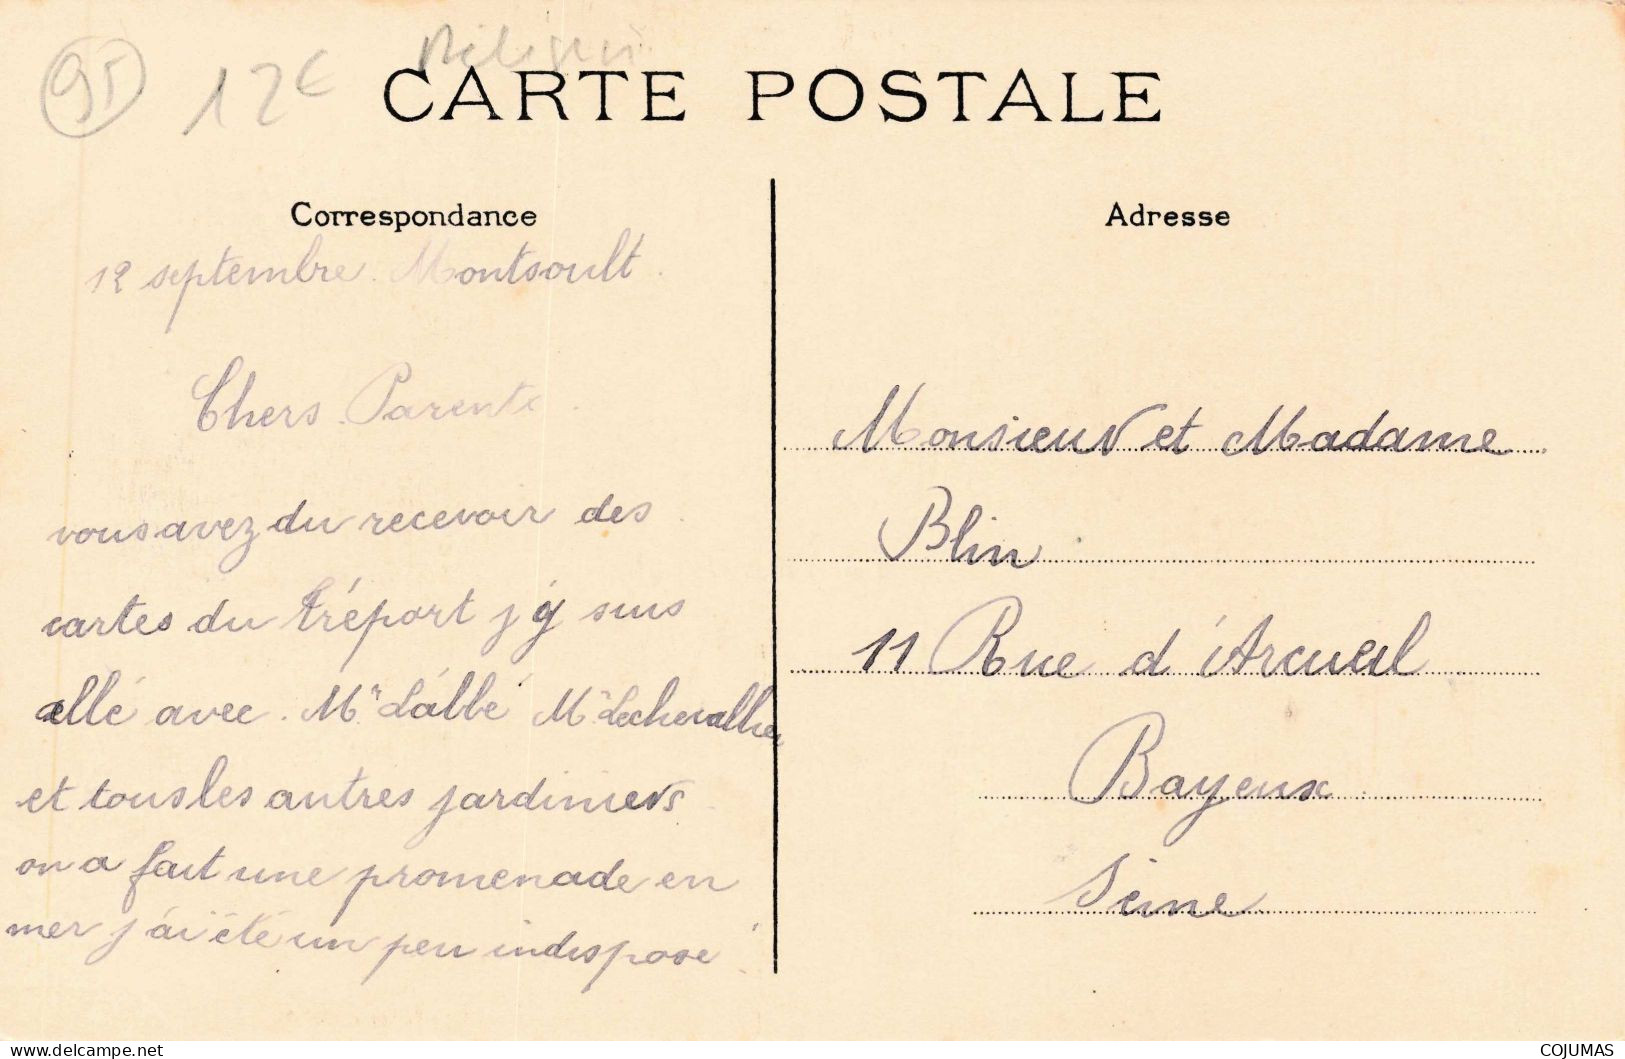 95
12€
CARTE POSTALE
Correspondance
12 septembre. Montsoult.
Chers Parents.
vous avez du recevoir des
cartes du tréport j'y suis
allé avec. Mr L'abbé Mr Lechevallier
et tous les autres jardiniers
on a fait une promenade en
mer j'ai été un peu indisposé
Adresse
Monsieur et Madame
Blin
11 Rue d'Arcueil
Bayeux
Seine
www.delcampe.net
COJUMAS